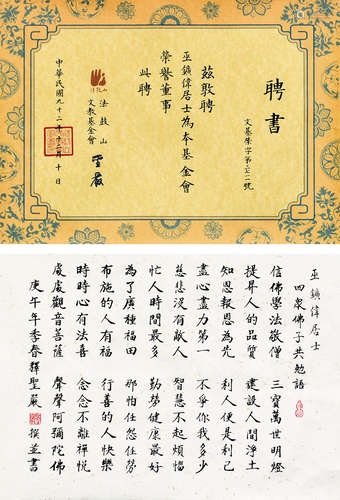 聘書
文基榮字第二二號
茲敦聘
巫鑛偉居士為本基金會
榮譽董事
此聘
法鼓山
文教基金會
聖嚴
中華民國九十二年十二月十日
巫鑛偉居士
四眾佛子共勉語
信佛學法敬僧 三寶萬世明燈
提昇人的品質 建設人間淨土
知恩報恩為先 利人便是利己
盡心盡力第一 不爭你我多少
慈悲沒有敵人 智慧不起煩惱
忙人時間最多 勤勞健康最好
為了廣種福田 那怕任怨任勞
布施的人有福 行善的人快樂
時時心有法喜 念念不離禪悅
處處觀音菩薩 聲聲阿彌陀佛
庚午年季春釋聖嚴 撰並書